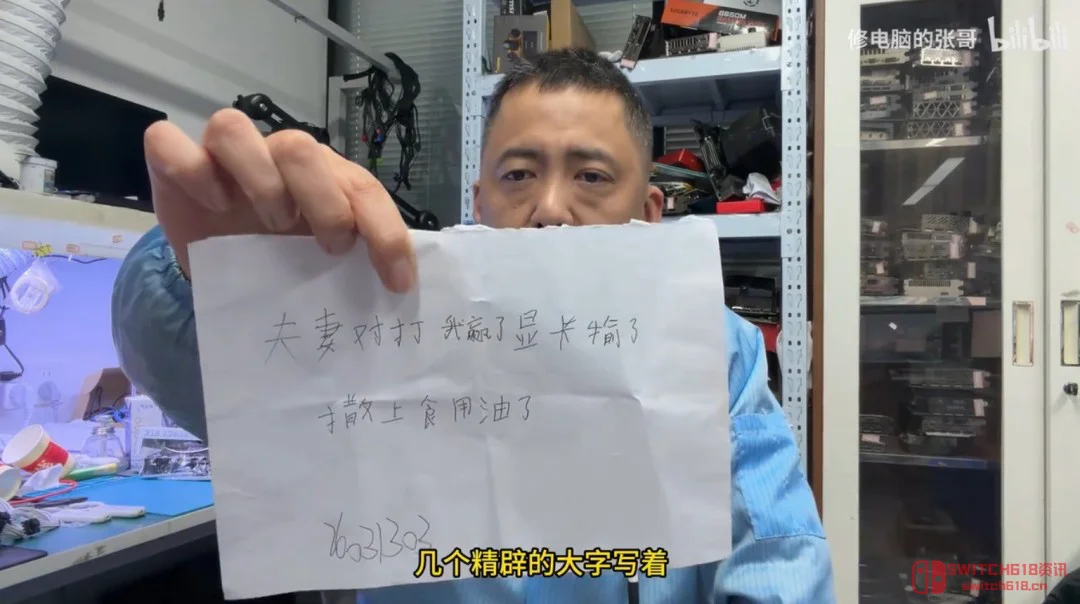 修电脑的张哥 bilibili
GIGABYTE B650M
夫妻对打 我赢了显卡输了
撒上食用油了
几个精辟的大字写着
SWITCH618资讯
switch618.cn